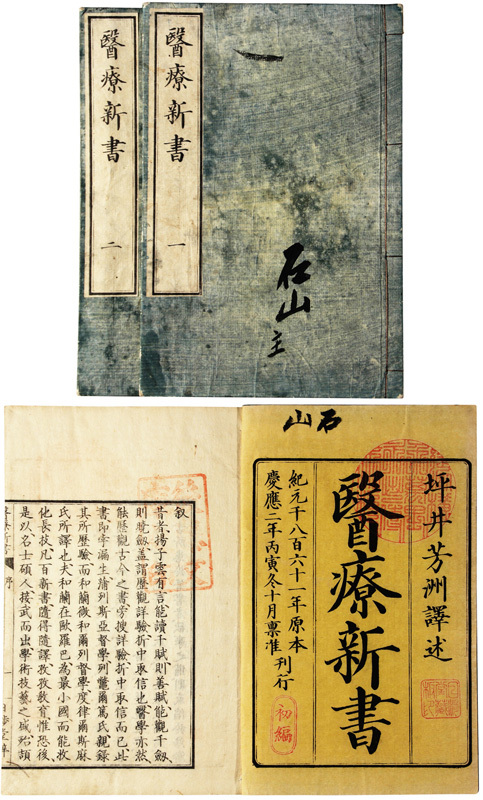 一
石山主
醫療新書 一
醫療新書 二
石山
坪井芳洲譯述
醫療新書
紀元千八百六十一年原本
慶應二年丙寅冬十月稟准 刊行
初編
叙
昔者揚子雲有言能讀千賦則善賦能觀千劔
則曉劔蓋謂歷觀詳驗折中取信也醫學亦然
能歷觀古今之書旁搜詳驗折中取信而已此
書即孛漏生列斯亞督學列爾篤氏親錄
其所歷驗而和蘭微和爾列督學度律爾斯麻
氏所譯也夫和蘭在歐羅巴為最小國而能攻
他長技凡百新書隨得隨譯孜孜教育惟恐後
是以名士碩人接武而出學術技藝之城殆頡
序